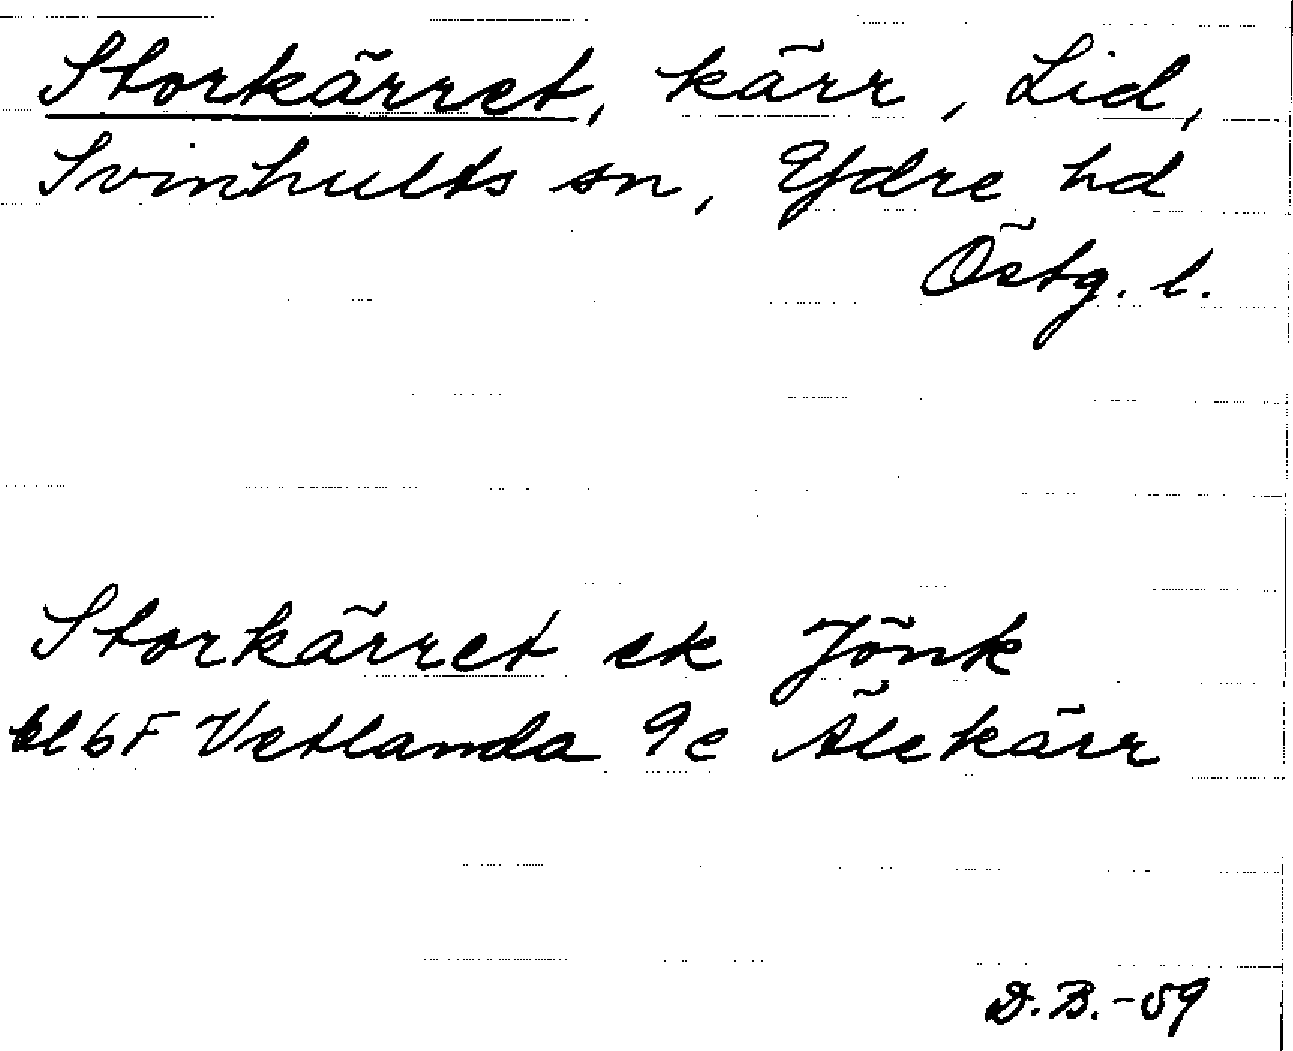 Storkärret, kärr, Lid,
Svinhults sn, Ydre hd
Östg. l.
Storkärret ek Jönk
bl 6F Vetlanda 9e Älekärr
D.B.-59